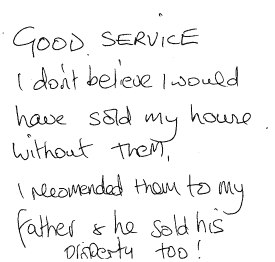 GOOD SERVICE
I don't believe I would
have sold my house
without them,
I recomended them to my
father & he sold his
property too!